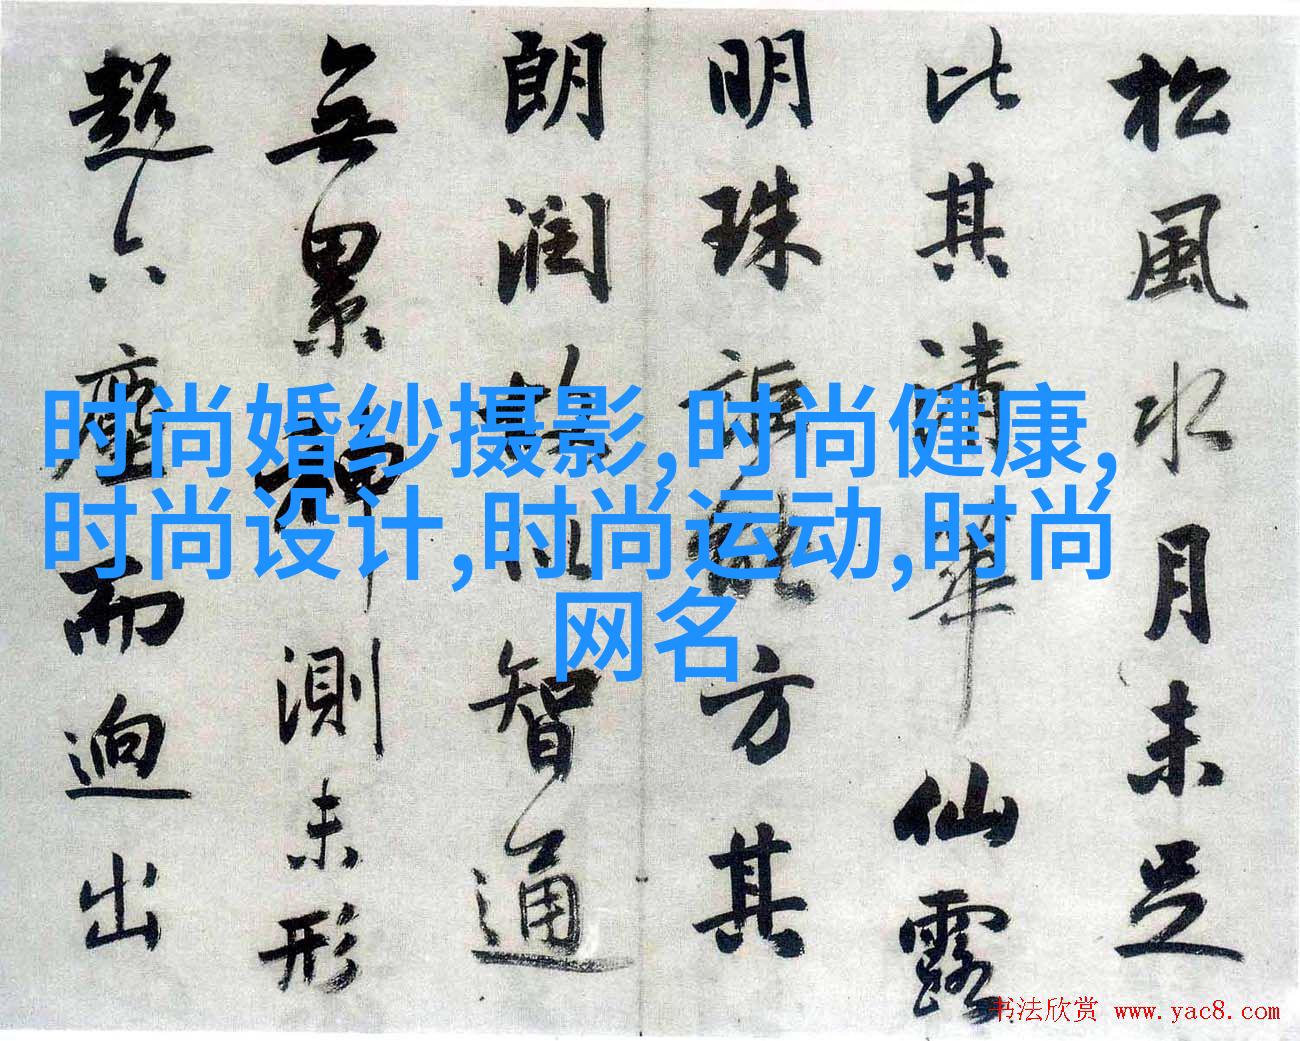 松風水月未足
比其清華仙露
明珠詎能方其
朗潤故以智通
無累神測未形
超六塵而迥出
时尚婚纱摄影,时尚健康,
时尚设计,时尚运动,时尚
网名
书法欣赏 www.yac8.com